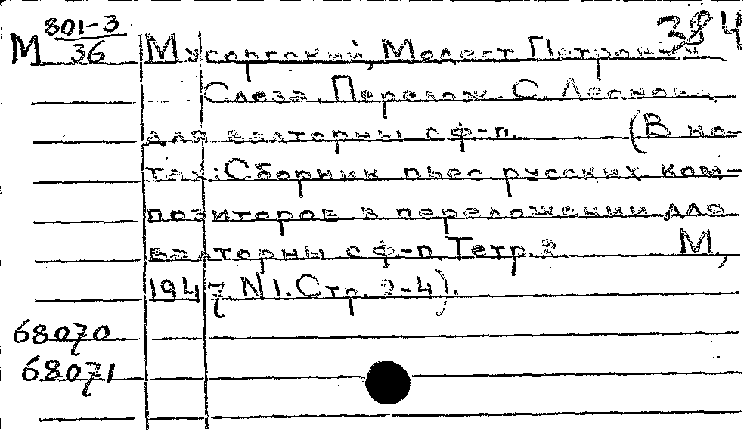 384
М 801-3
36
Мусоргский, Модест Петрович
Слеза. Перелож. С. Леонов
для валторны с ф-п. (В но-
тах: Сборник пьес русских ком-
позиторов в переложении для
валторны с ф-п. Тетр. 2. М,
1947. N1. Стр. 2-4).
68070
68071